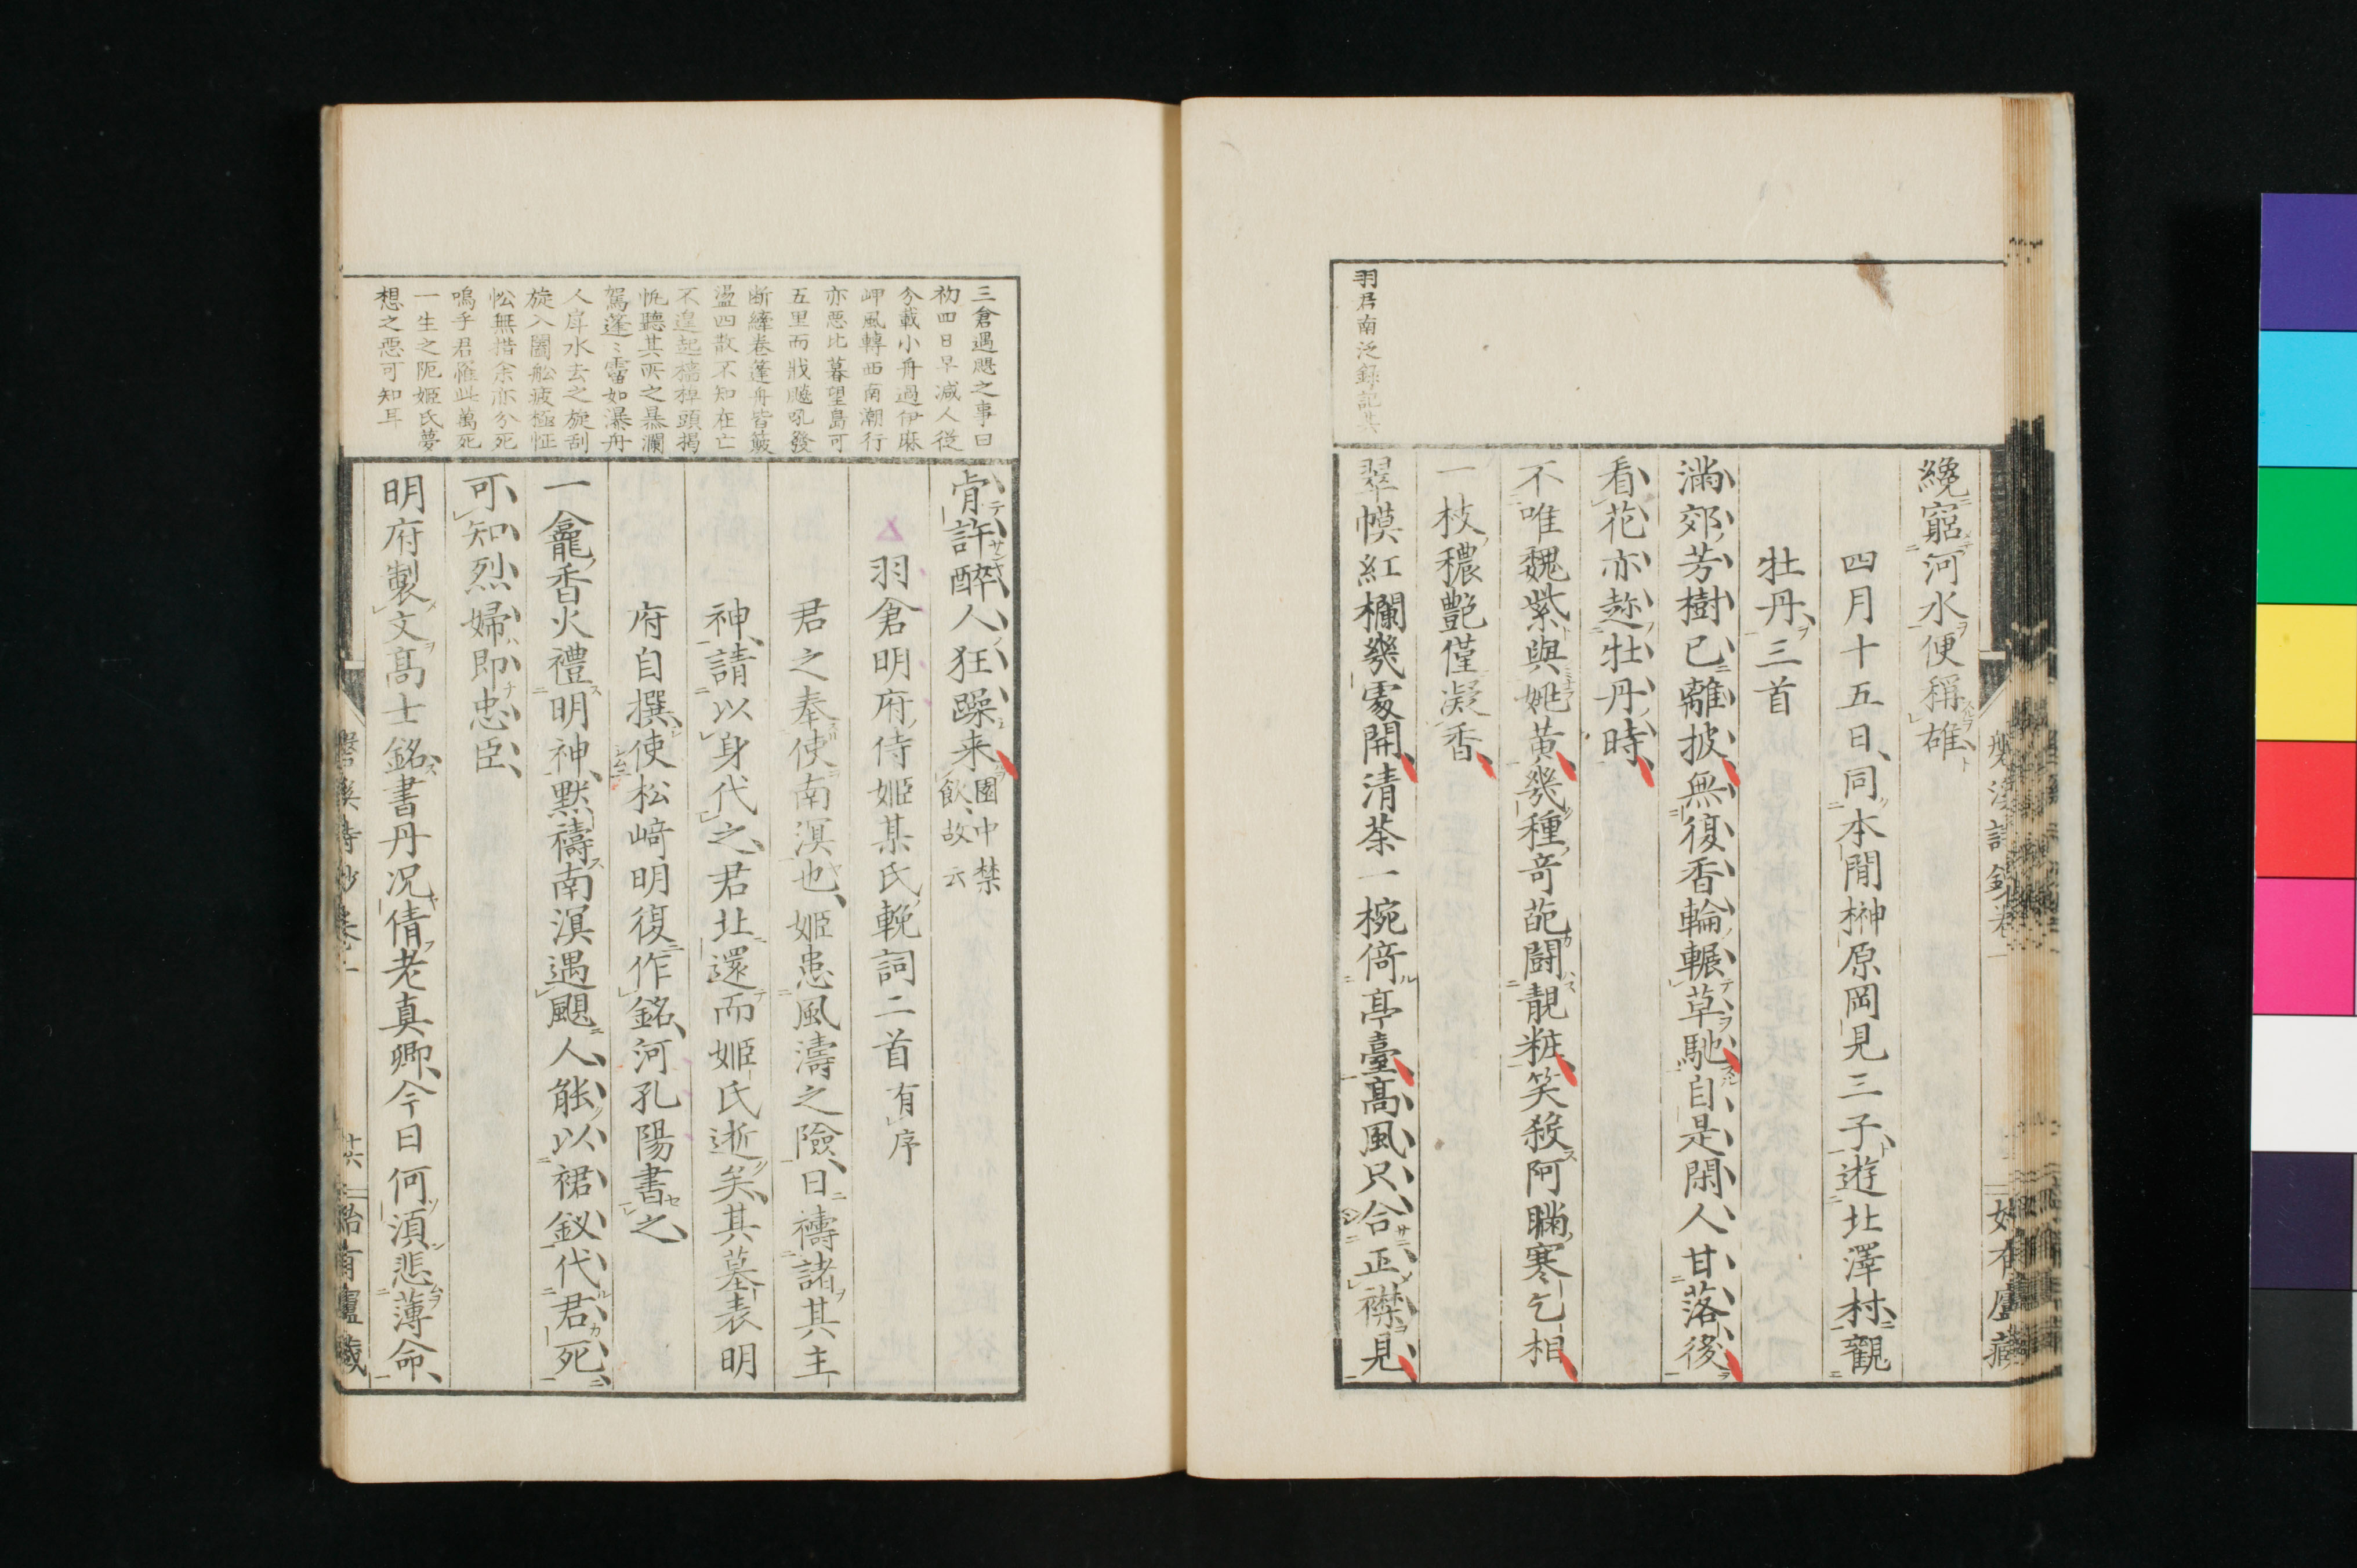 纔窮河水便稱雄
四月十五日同本間榊原岡見三子遊北澤村觀
牡丹三首
滿郊芳樹已離披無復香輪輾草馳自是閑人甘落後
看花亦趂牡丹時
不唯魏紫與姚黃幾種奇葩鬪靚粧笑殺阿瞞寒乞相
一枝穠艷僅凝香
翠幙紅欄幾處開清茶一椀倚亭臺高風只合正襟見
羽君南泛錄記其
三倉遇颶之事曰
初四日早減人從
分載小舟過伊麻
岬風轉西南潮行
亦惡比暮望島可
五里而戕颷吼發
斷縴卷蓬舟皆簸
盪四散不知在亡
不遑起檣棹頭揭
帆聽其所之暴瀾
駕蓬〻雷如瀑舟
人戽水去之旋刮
旋入闔舩疲極怔
忪無措余亦分死
嗚乎君罹此萬死
一生之阨姬氏夢
想之惡可知耳
肯許醉人狂躁来
園中禁
飲故云
羽倉明府侍姬某氏輓詞二首有序
君之奉使南溟也姬患風濤之險日禱諸其主
神請以身代之君北還而姬氏逝矣其墓表明
府自撰使松﨑明復作銘河孔陽書之
一龕香火禮明神默禱南溟遇颶人能以裙釵代君死
可知烈婦即忠臣
明府製文高士銘書丹况倩老真卿今日何湏悲薄命